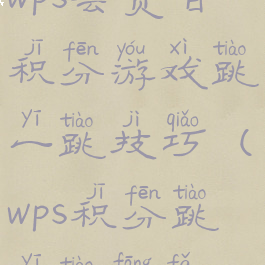 jī fēn yóu xì tiào
积分游戏跳
yī tiào jì qiǎo
一跳技巧（
jī fēn tiào
wps积分跳
yī tiào fāng fǎ